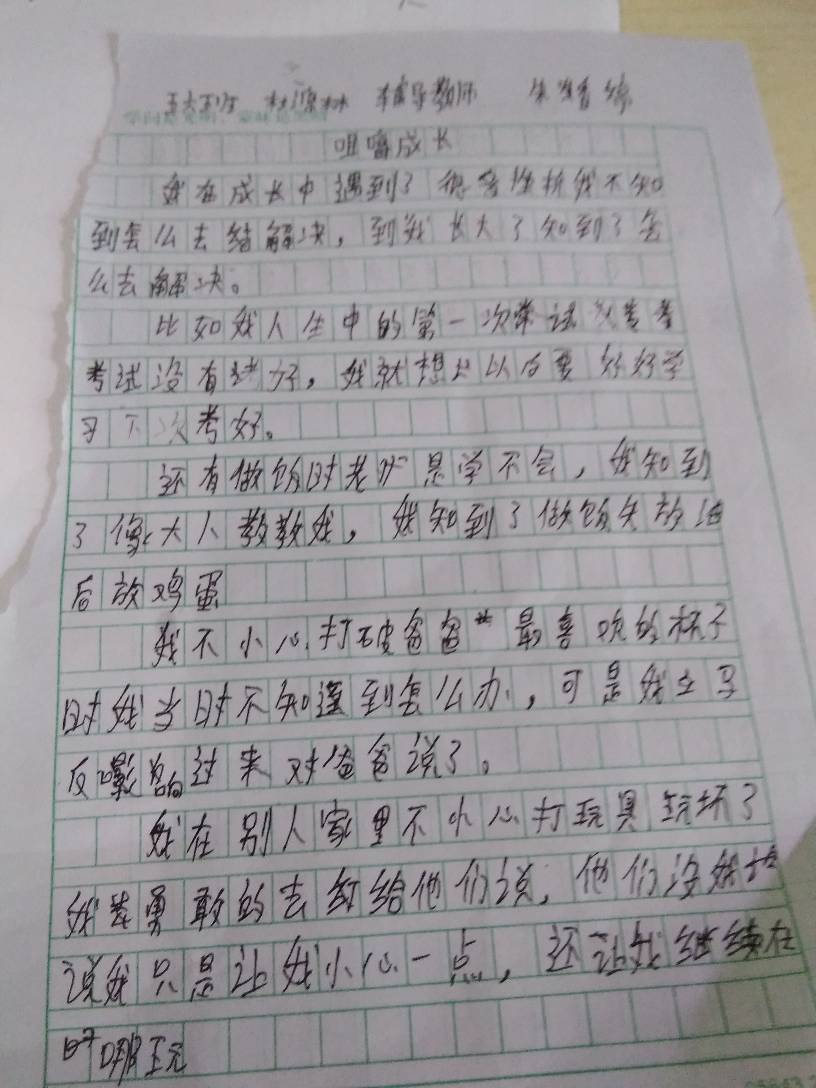 辅导教师 朱
咀嚼成长
我在成长中遇到了很多挫折我不知
到怎么去结解决，到我长大了知到了怎
么去解决。
比如我人生中的第一次常试考
考试没有考好，我就想以后要好好学
习下次考好。
还有做饭时老是学不会，我知到
了像大人教教我，我知到了做饭先放油
后放鸡蛋
我不小心打破爸爸最喜欢的杯子
时我当时不知道到怎么办，可是我立马
反影响过来对爸爸说了。
我在别人家里不小心打玩具玩坏了
我勇敢的去给他们说，他们没我
说我只是让我小心一点，还让我继续在
哪玩